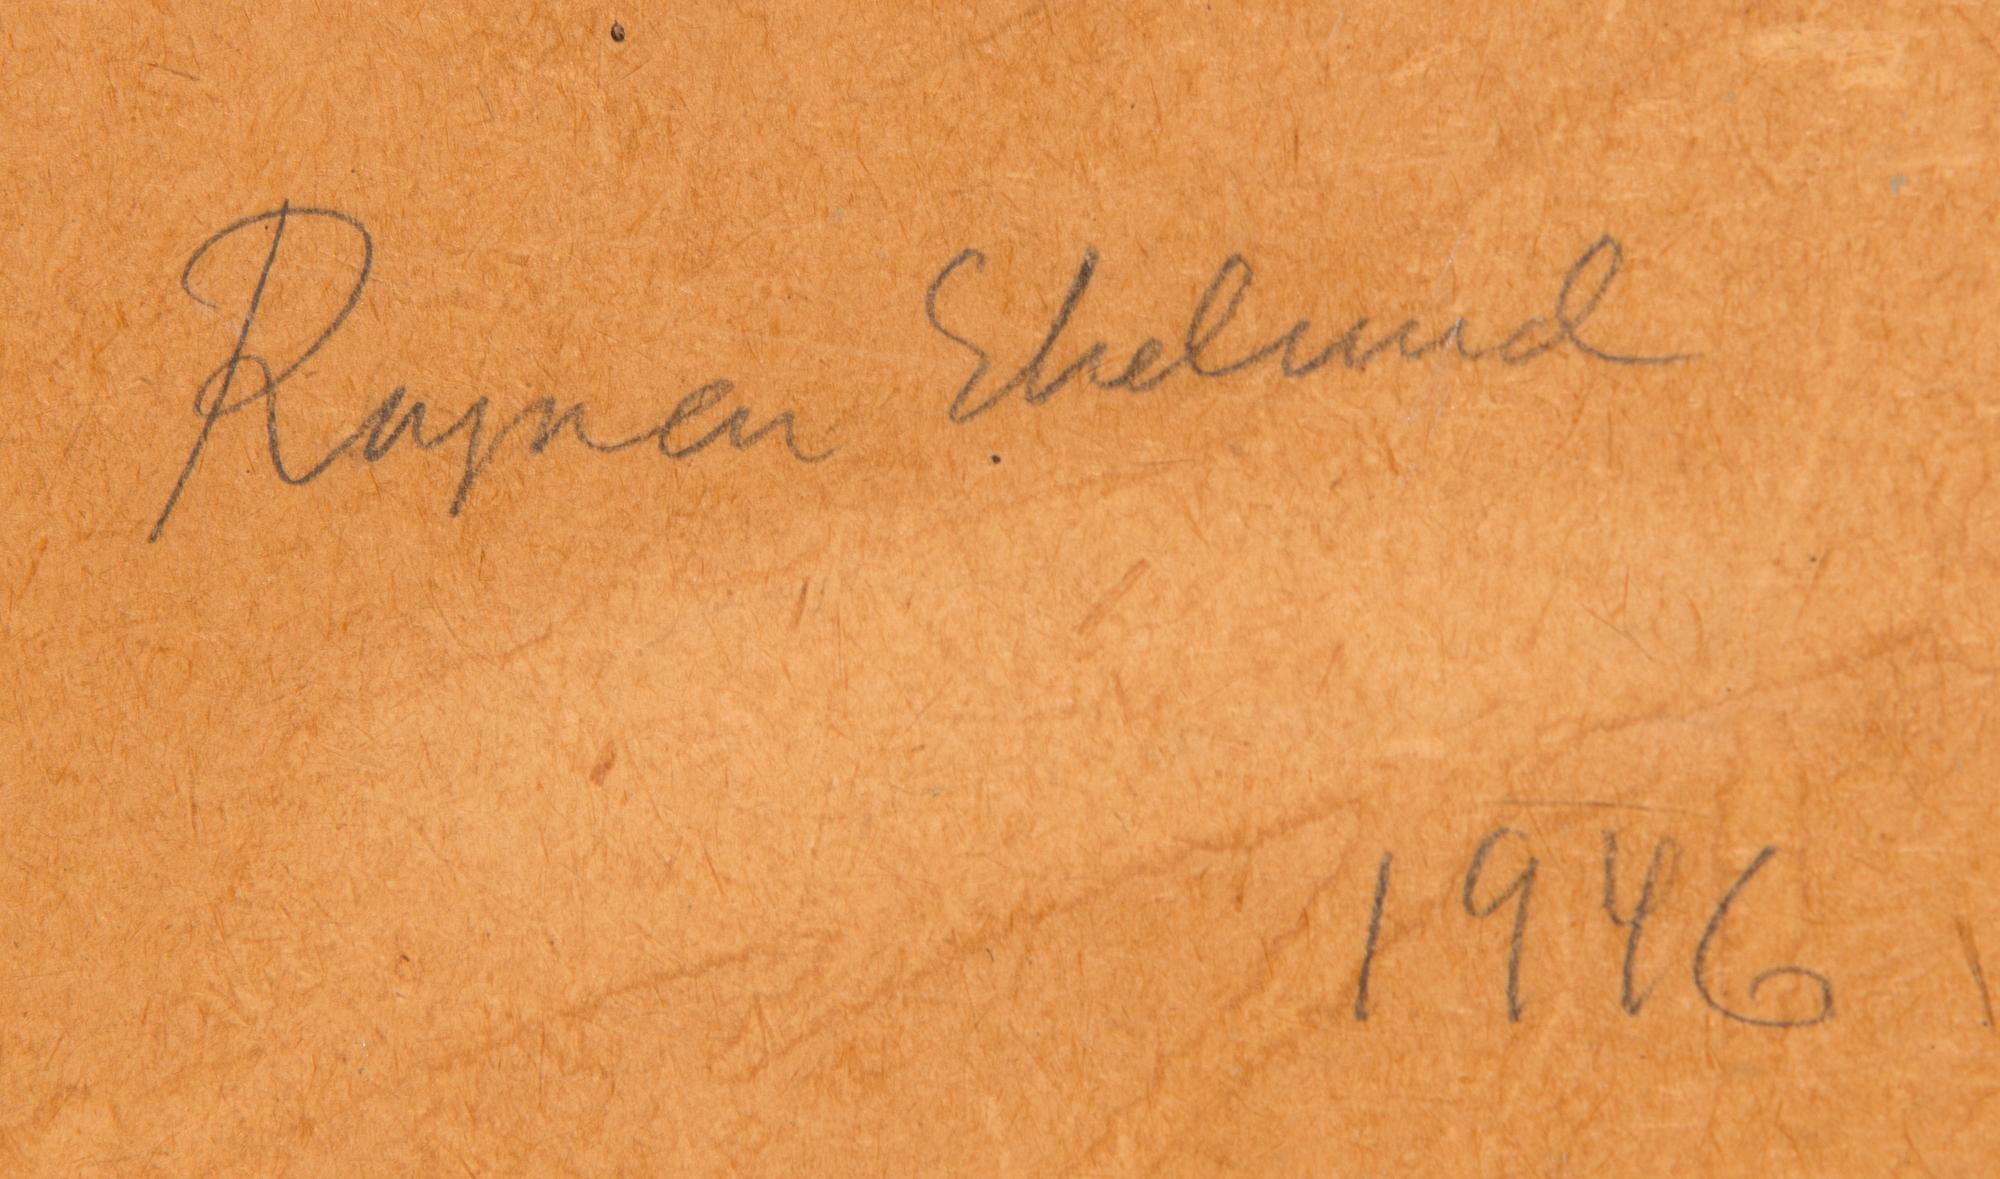 Ragnar Ekelund
1946